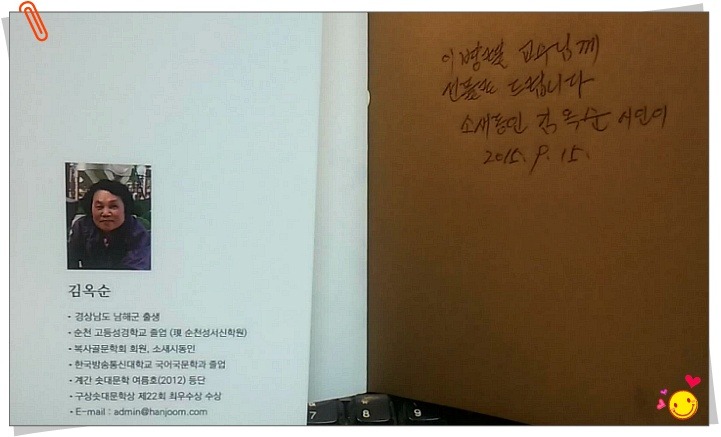 김옥순
- 경상남도 남해군 출생
- 순천 고등성경학교 졸업 (現 순천성서신학원)
- 복사골문학회 회원, 소새시동인
- 한국방송통신대학교 국어국문학과 졸업
- 계간 솟대문학 여름호(2012) 등단
- 구상솟대문학상 제22회 최우수상 수상
- E-mail : admin@hanjoom.com
이병렬 교수님께
선물로 드립니다
소새동인 김옥순 시인이
2015. 9. 15.
7 8 9